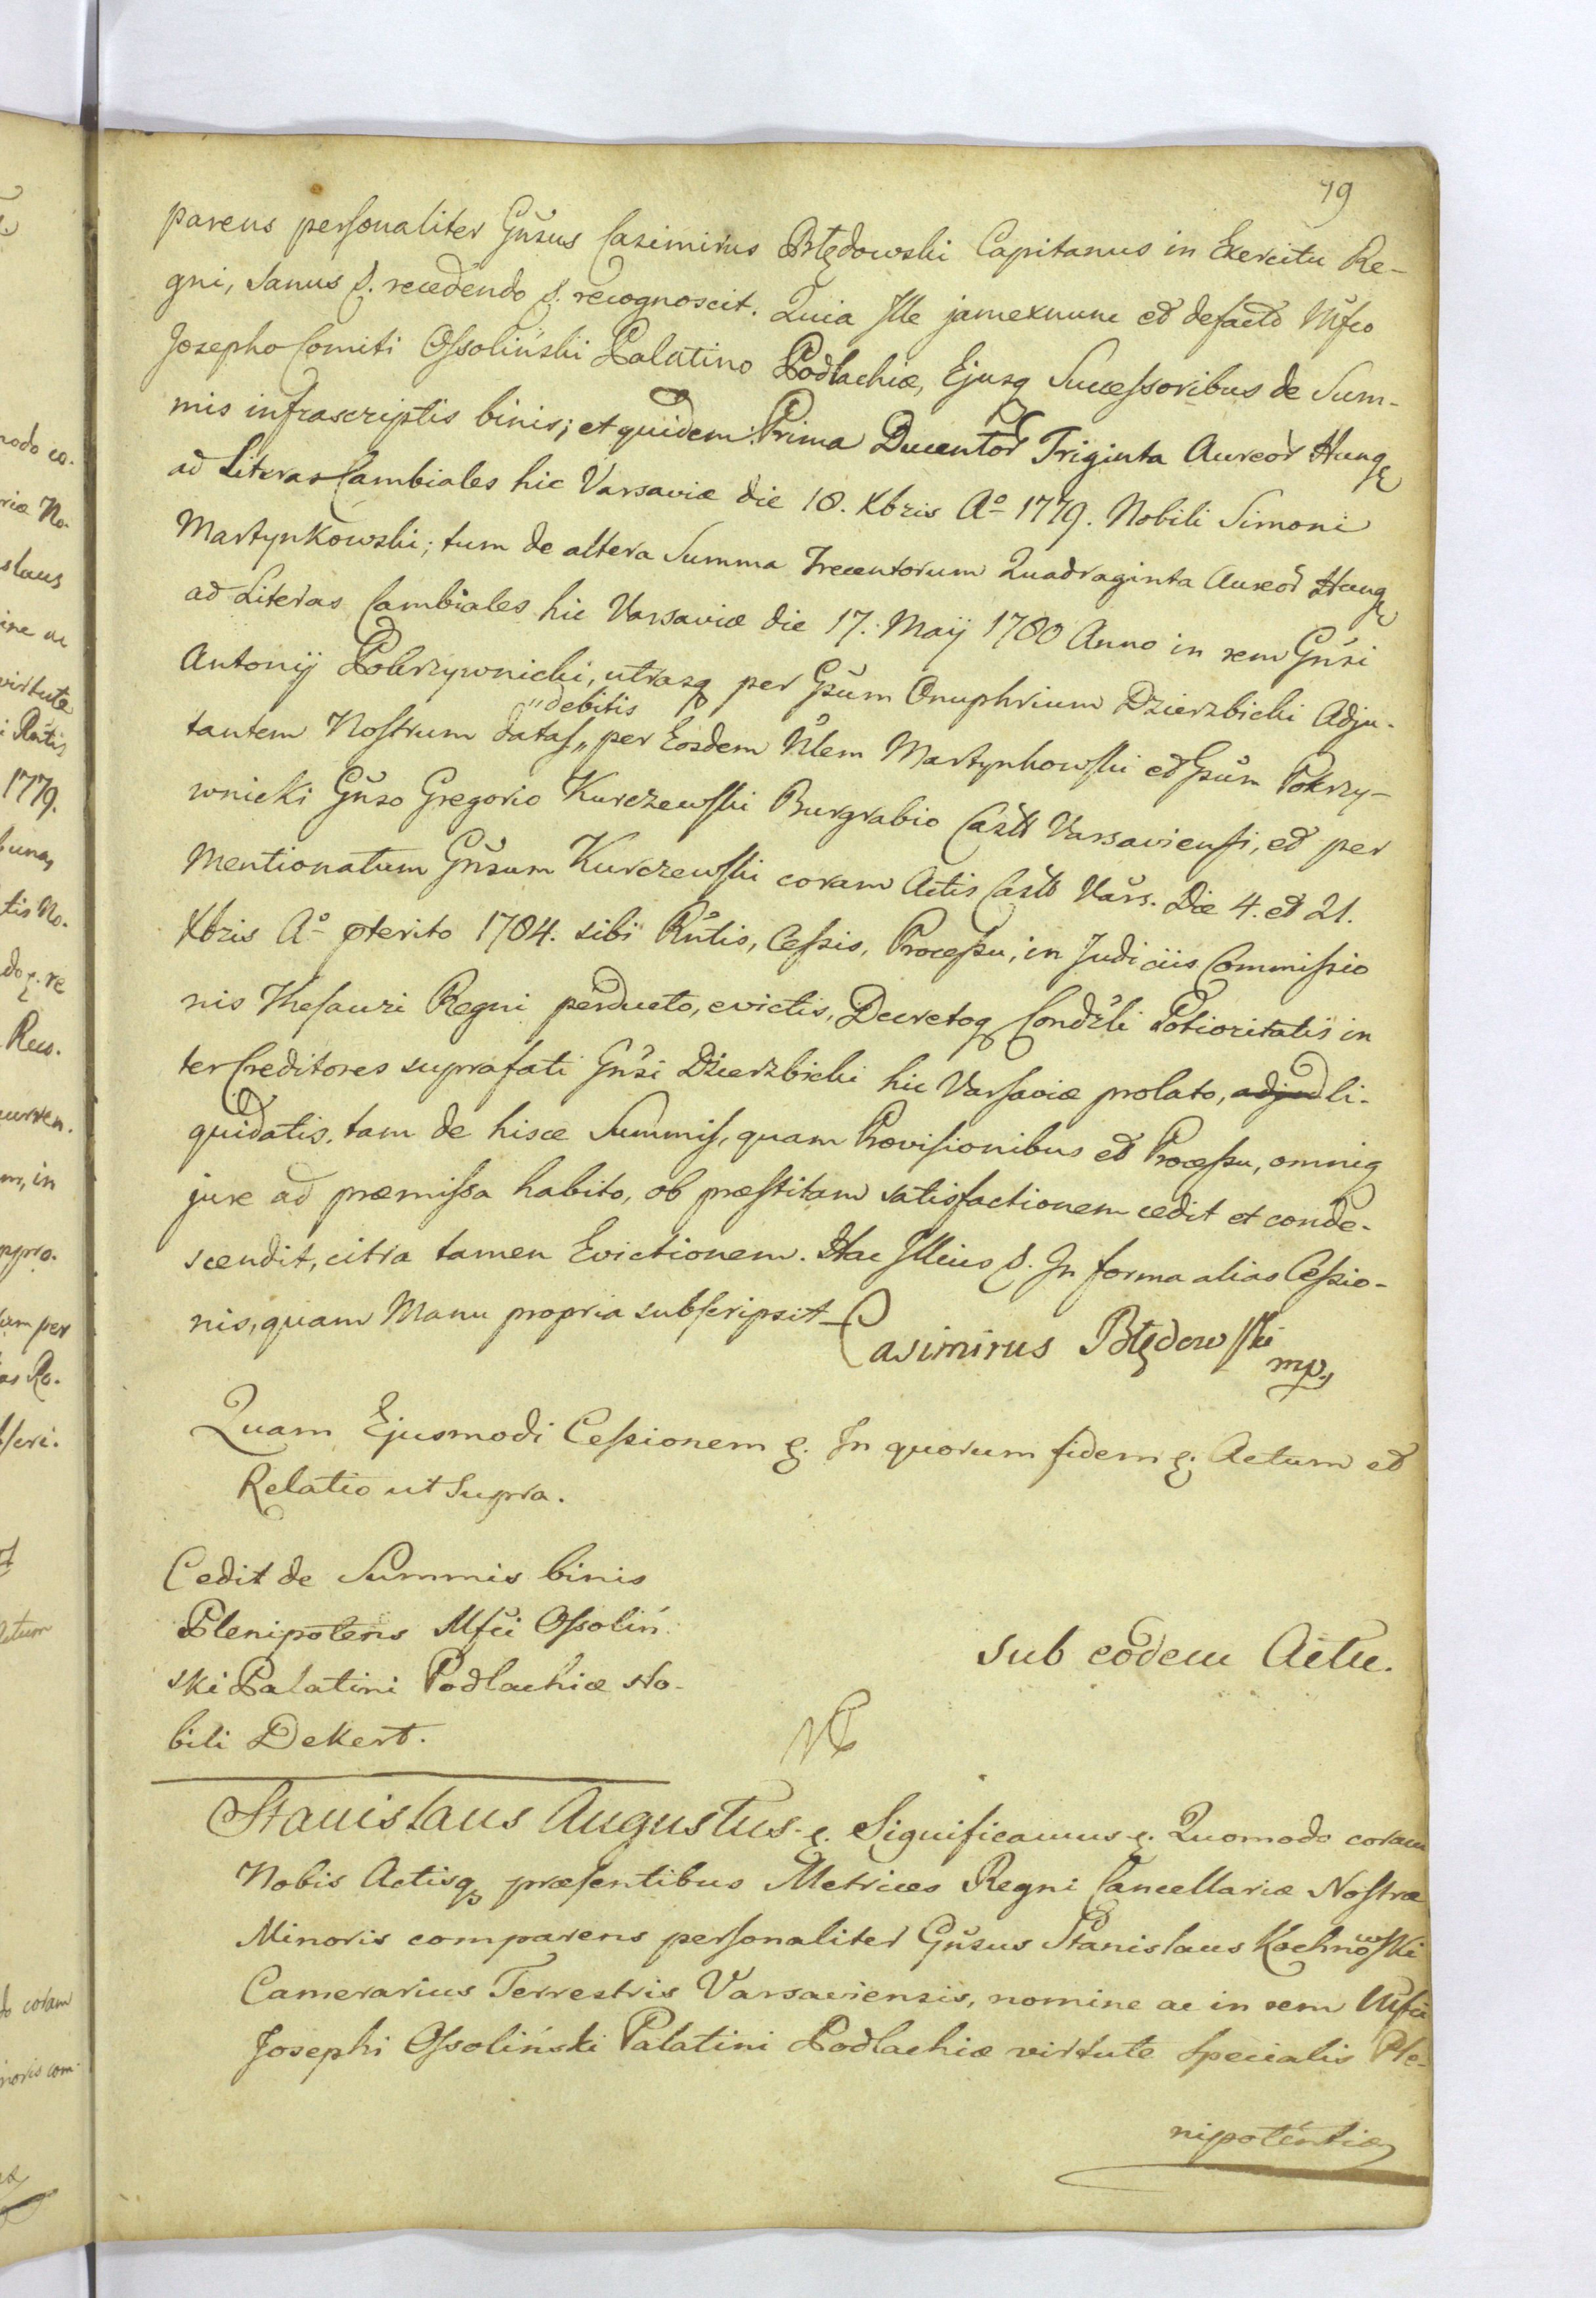 79
parens personaliter Gnsus Casimirus Błędowski Capitanus in Exercitu Re-
gni, Sanus &. recedendo &. recognoscit. Quia Ille jamexnunc et defacto Mfco
Josepho Comiti Ossoliński Palatino Podlachiæ, Ejusq Successoribus de Sum-
mis infrascriptis binis; et quidem Prima Ducentor Triginta Aureor Hung
ad Literas Cambiales hic Varsaviæ die 18. Xbris Ao 1779. Nobili Simoni
Martynkowski; tum de altera Summa Trecentorum Quadraginta Aureor Hung
ad Literas Cambiales hic Varsaviæ die 17. Maij 1780 Anno in rem Gnsi
Antonij Pokrzywnicki, utrasq per Gsum Onuphrium Dzierzbicki Adju-
"debitis
tantem Nostrum datas,, per Eosdem Nlem Martynkowski et Gsum Pokrzy-
wnicki Gnso Gregorio Kurczewski Burgrabio Castr Varsaviensi, et per
Mentionatum Gnsum Kurczewski coram Actis Castr Vars. Die 4. et 21.
Xbris Ao pterito 1784. sibi Rntis, Cessis, Processu, in Judiciis Commissio
nis Thesauri Regni perducto, evictis, Decretoq Condzli Potioritatis in
ter Creditores suprafati Gnsi Dzierzbicki hic Varsaviæ prolato, adjud li-
quidatis, tam de hisce Summis, quam Provisionibus et Processu, omniq
jure ad præmissa habito, ob præstitam satisfactionem cedit et conde-
scendit, citra tamen Evictionem. Hac Illius &. In forma alias Cessio-
nis, quam Manu propria subscripsit
Casimirus Błędowski
mp.
Quam Ejusmodi Cessionem &. In quorum fidem &. Actum et
Relatio ut Supra.
Cedit de Summis binis
Plenipotens Mfci Ossoliń
ski Palatini Podlachiæ No-
bili Dekert.
Sub eodem Actu.
Stanislaus Augustus &. Significamus &. Quomodo coram
Nobis Actisq præsentibus Metrices Regni Cancellariæ Nostræ
Minoris comparens personaliter Gnsus Stanislaus Kochnowski
Camerarius Terrestris Varsaviensis, nomine ac in rem Mfci
Josephi Ossoliński Palatini Podlachiæ virtute Specialis Ple-
nipotentiæ